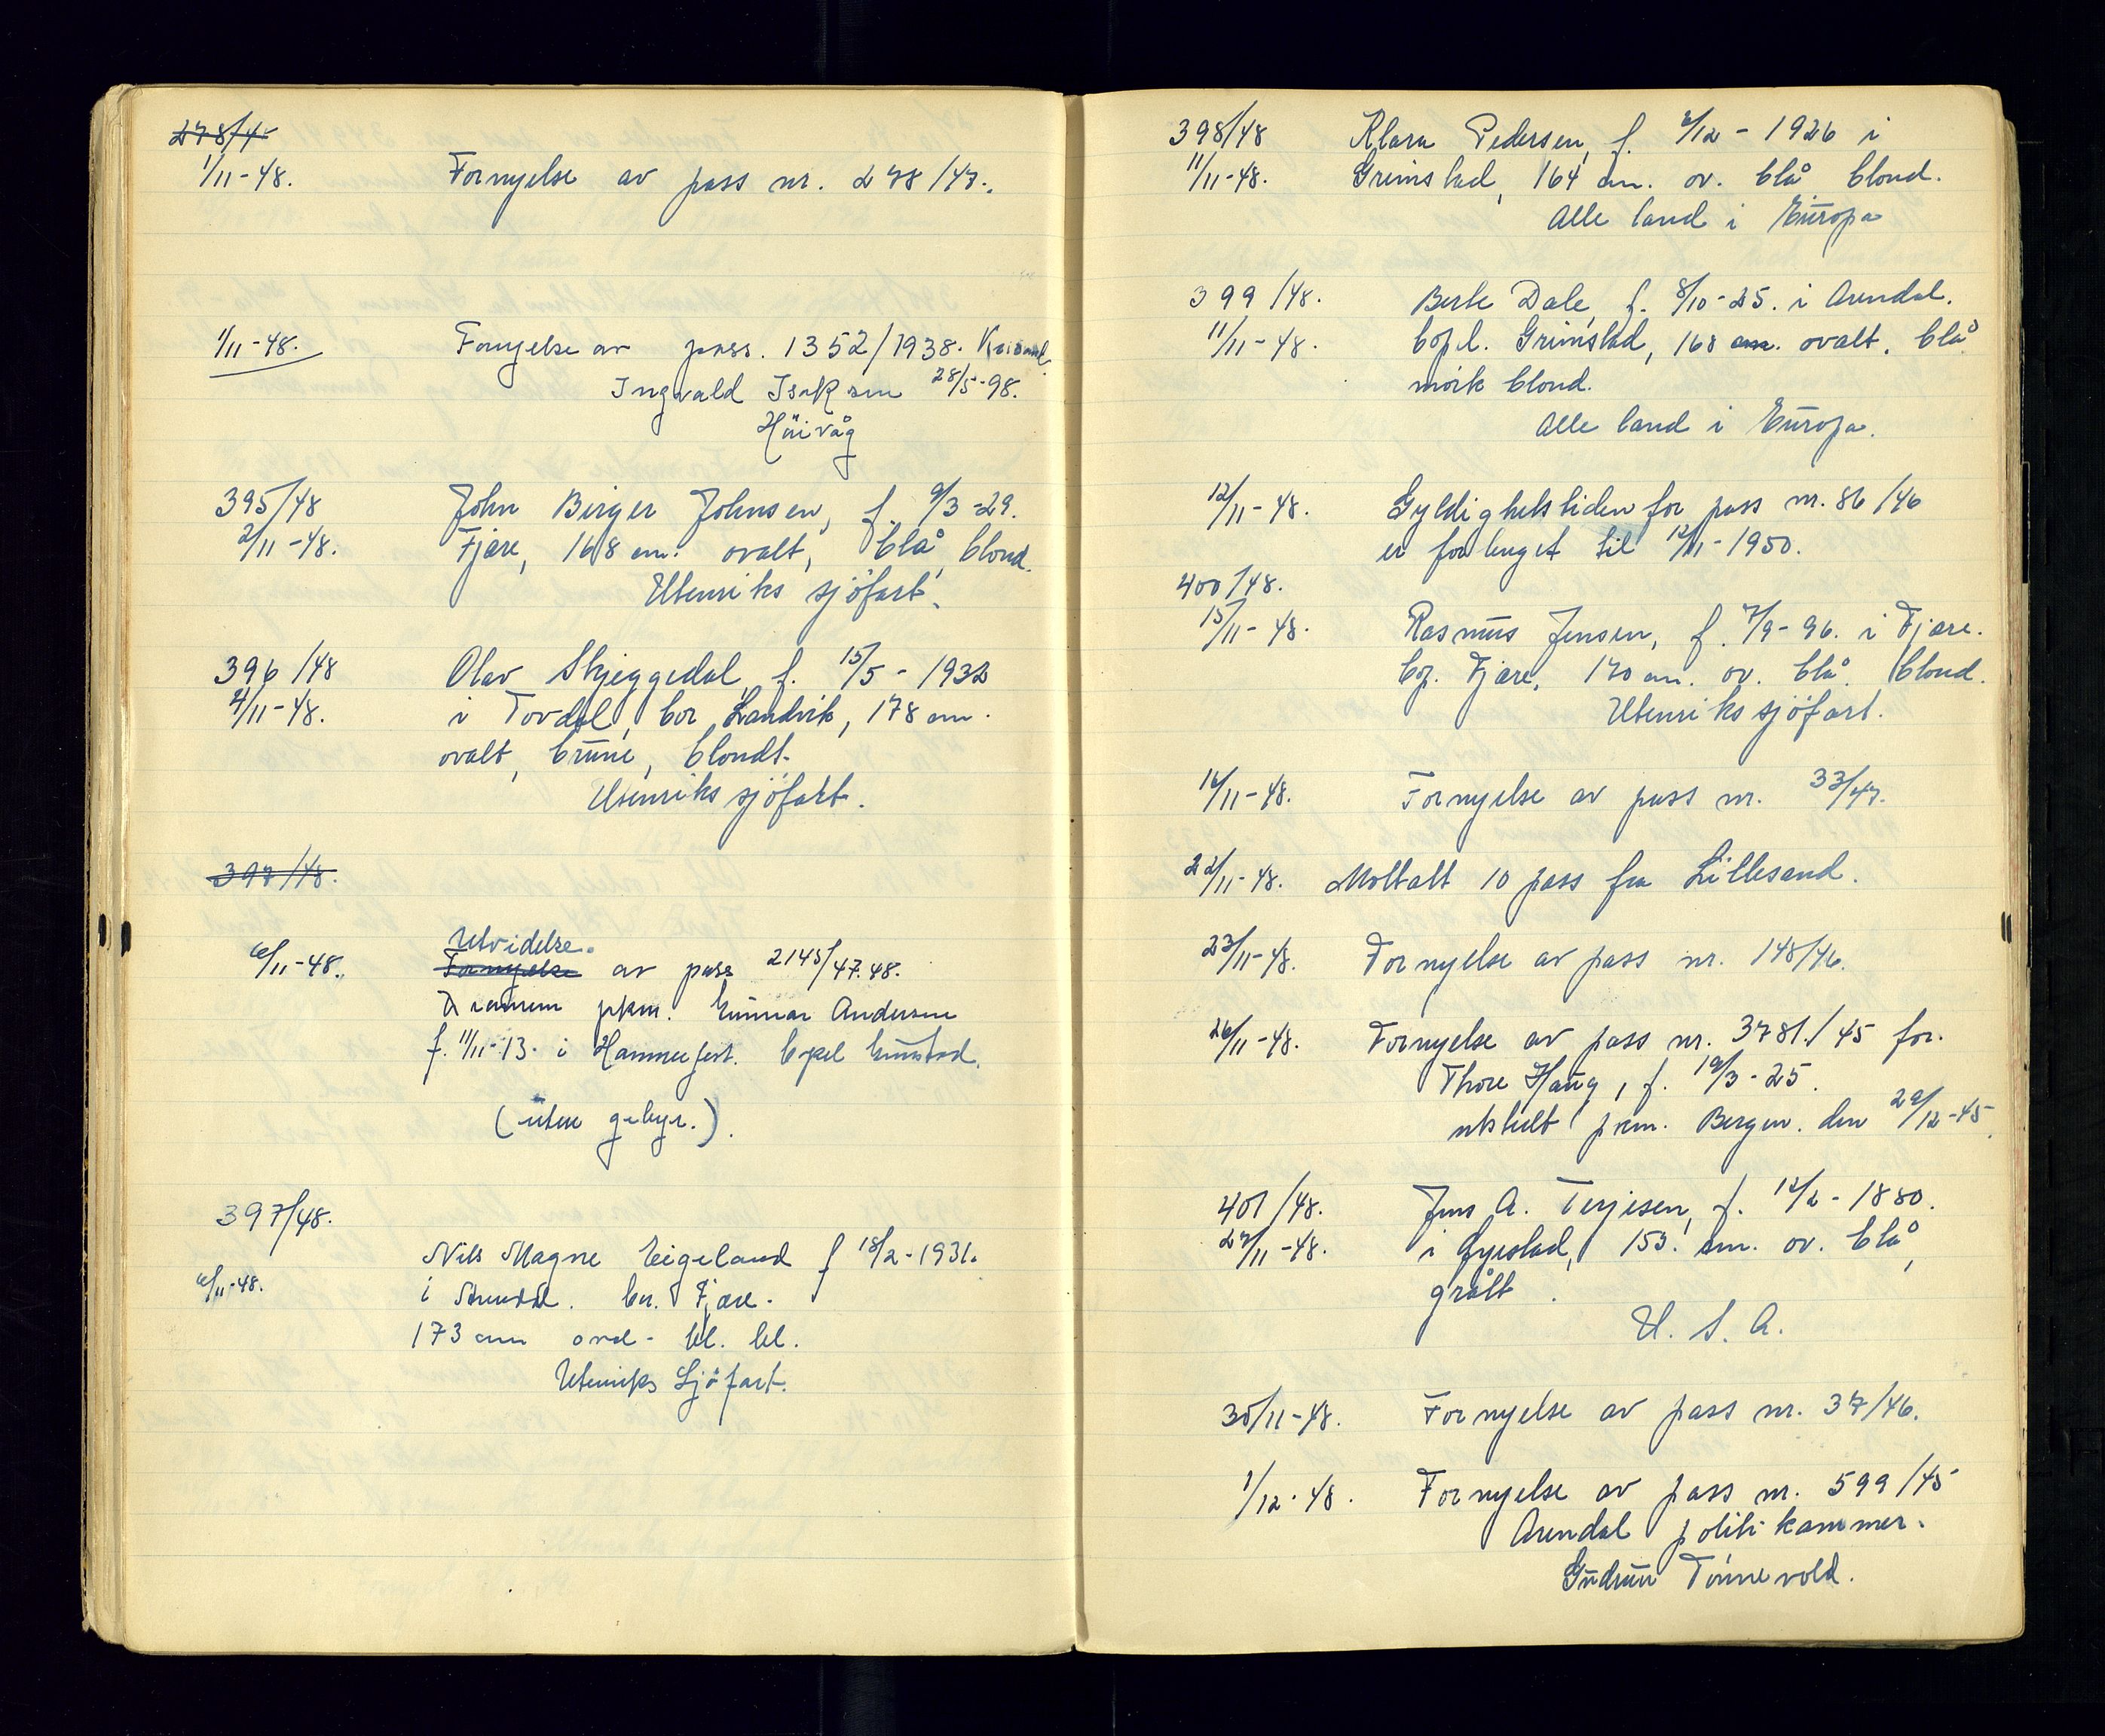 278/4
1/11-48. Fornyelse av pass nr. 278/47.
1/11-48. Fornyelse av pass. 1352/1938. Krisand
Ingvald Isaksen 28/5-98.
Höivåg
395/48 John Birger Johnsen, f. 9/3-29.
2/11-48. Fjære, 168 cm. ovalt, blå, blond.
Utenriks sjöfart.
396/48 Olav Skjeggedal, f. 15/5-1932
4/11-48. i Tovdal, bor Landvik, 178 cm.
ovalt, brune, blondt.
Utenriks sjöfart.
397/48.
Utvidelse.
6/11-48. Fornyelse av pass 2145/47.48.
pkm. Gunnar Andersen
f. 11/11-13. i Hammerfest. bopel Grimstad.
(uten gebyr.).
397/48.
Nils Magne Eigeland f 18/2-1931.
6/11-48. i Arendal. bor. Fjære.
173 cm oval- bl. bl.
Utenriks Sjöfart.
398/48 Klara Pedersen, f. 2/12-1926 i
11/11-48. Grimstad, 164 cm. ov. blå blond.
Alle land i Europa
399/48. Berte Dale, f. 8/10-25. i Arendal.
11/11-48. bopl. Grimstad, 168 cm. ovalt, blå
mörk blond.
Alle land i Europa.
12/11-48. Gyldighetstiden for pass nr. 86/46
er forlenget til 12/11-1950.
400/48.
15/11-48. Rasmus Jensen, f. 7/9-96. i Fjære.
bop. Fjære, 170 cm. ov. blå. blond.
Utenriks sjöfart.
16/11-48. Fornyelse av pass nr. 33/47.
22/11-48. Mottatt 10 pass fra Lillesand.
23/11-48. Fornyelse av pass nr. 148/46.
26/11-48. Fornyelse av pass nr. 3781./45 for.
Thore Haug, f. 19/3-25.
utstedt pkm. Bergen. den 29/12-45.
401/48. Jens A. Terjesen, f. 12/2-1880.
27/11-48. i 153. cm. ov. blå,
grått.
U. S. A.
30/11-48. Fornyelse av pass nr. 37/46.
1/12-48. Fornyelse av pass nr. 599/45
Arendal politikammer.
Gudrun Tönnevold.